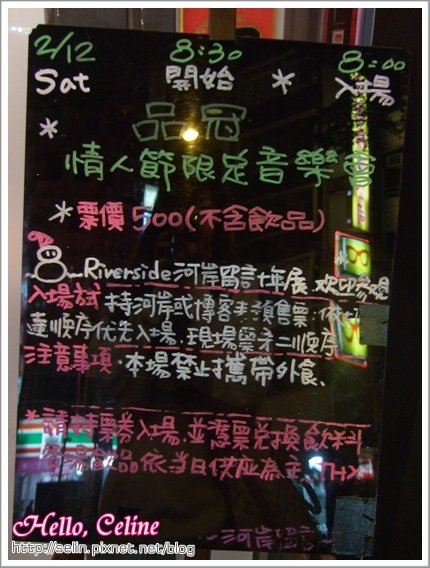 2/12 8:30 8:00
Sat 開始 * 入場
* 品冠
情人節限定音樂會
* 票價500(不含飲品)
Riverside 河岸留言十年展,歡迎參觀
入場式 持河岸或博客來預售票,依
達順序优先入場,現場票才二順序
注意事項.本場禁止攜帶外食、
*請持票券入場,並憑票兌換飲料
品依当日供应為主,THX
~河岸留言~
Hello, Celine
http://selin.pixnet.net/blog